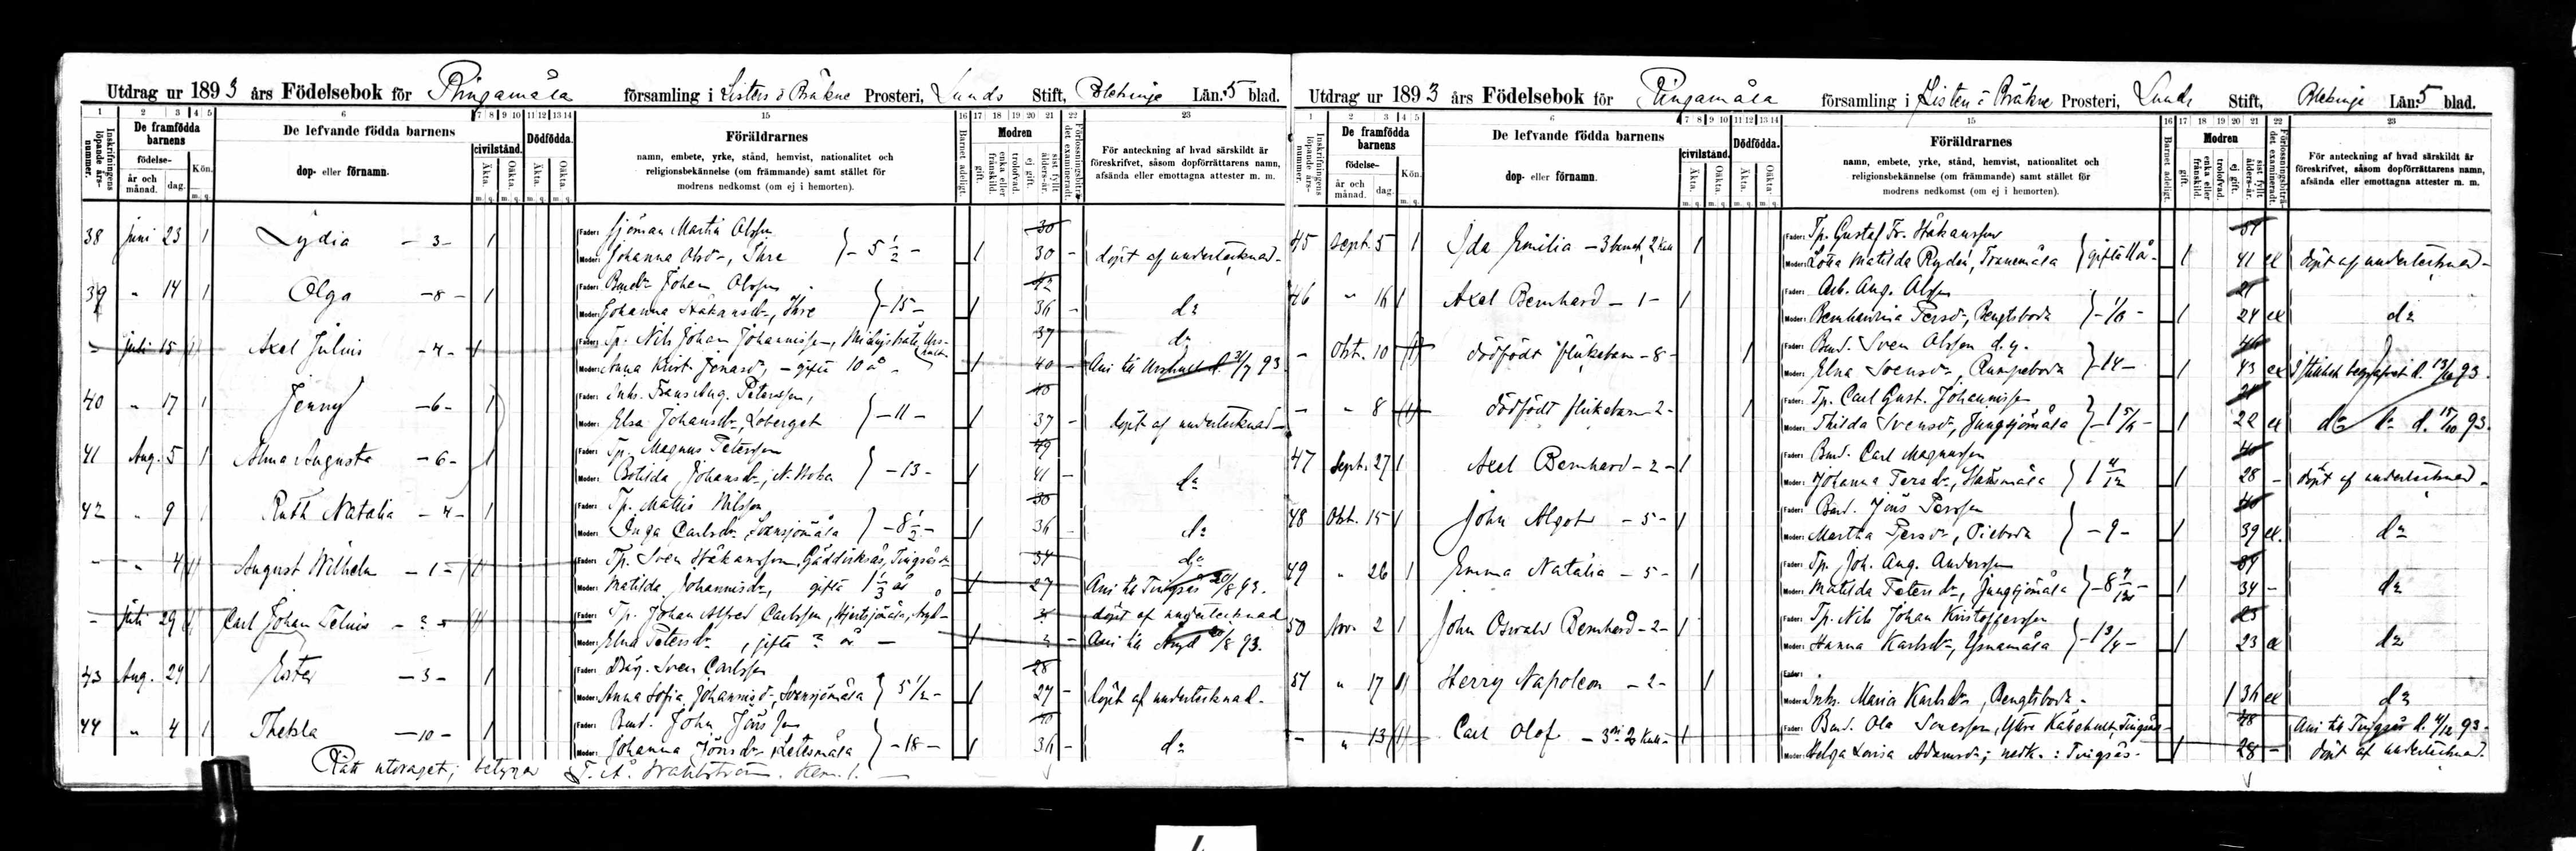 Utdrag ur 1893 års Födelsebok för Ringamåla församling i Listers o Bräkne Prosteri, Lunds Stift, Blekinge Län. 5 blad.
1 2 3 4 5 6 7 8 9 10 11 12 13 14 15 16 17 18 19 20 21 22 23
Inskrifningens löpande års-nummer.
De framfödda barnens
födelse-
år och månad. dag. Kön. m. q.
De lefvande födda barnens
dop- eller förnamn.
civilstånd. Äkta. Oäkta. m. q. m. q.
Dödfödda. Äkta. Oäkta. m. q. m. q.
Föräldrarnes
namn, embete, yrke, stånd, hemvist, nationalitet och
religionsbekännelse (om främmande) samt stället för
modrens nedkomst (om ej i hemorten).
Barnet adeligt.
Modren
gift. enka eller frånskild. trolofvad. ej gift. sist fyllt ålders-år.
Förlossningsbiträdet examineradt.
För anteckning af hvad särskildt är
föreskrifvet, såsom dopförrättarens namn,
afsända eller emottagna attester m. m.
Fader: Sjöman Martin Olsson 30
38 Juni 23 1 Lydia - 3 - 1 Moder: Johanna Olsdr, Ihre - 5 1/2 - 1 30 - döpt af undertecknad
Fader: Johan Olsson 42
39 " 14 1 Olga - 8 - 1 Moder: Johanna Håkansdr, Ihre - 15 - 1 36 - do
Fader: Tp. Nils Johan Johannisson, 37 do
- Juli 15 Axel Julius - 4 - Moder: Anna Krist. Jonasd, - gifta 10 år - 1 40 - 31/7 93
Fader: Inhs. Frans Aug. Petersson, 40
40 " 17 1 Jenny - 6 - 1 Moder: Elsa Johansdr, Loberget - 11 - 1 37 - döpt af undertecknad
Fader: Tp. Magnus Petersson 49
41 Aug. 5 1 Alma Augusta - 6 - 1 Moder: Botilda Johansdr, - 13 - 1 41 - do
Fader: Tp. Mattis Nilsson 30
42 " 9 1 Ruth Natalia - 4 - 1 Moder: Inga Carlsdr, Svansjömåla - 8 1/2 - 1 36 do
Fader: Tp. Sven Håkansson, Tingsås 34 do
- " 4 August Wilhelm - 1 - Moder: Matilda Johannisdr, gifta 1 1/3 år 1 27 Ani till Tingsås 20/8 93.
Fader: Tp. Johan Alfred Carlsson, döpt af undertecknad
- Juli 29 Carl Johan - ? - Moder: Elna Petersdr, gifta ? år - 1 ? - Ani till 20/8 93.
Fader: Sven Carlsson 28
43 Aug. 29 1 Ester - 3 - 1 Moder: Anna Sofia Johannisd, Svansjömåla 5 1/2 - 1 27 - döpt af undertecknad.
Fader: Bmd. John Jönsson 40
44 " 4 1 Thekla - 10 - 1 Moder: Johanna Jönsdr, - 18 - 1 36 - do
Rätt utdraget; betygar
Utdrag ur 1893 års Födelsebok för Ringamåla församling i Listers o Bräkne Prosteri, Lunds Stift, Blekinge Län. 5 blad.
1 2 3 4 5 6 7 8 9 10 11 12 13 14 15 16 17 18 19 20 21 22 23
Inskrifningens löpande års-nummer.
De framfödda barnens
födelse-
år och månad. dag. Kön. m. q.
De lefvande födda barnens
dop- eller förnamn.
civilstånd. Äkta. Oäkta. m. q. m. q.
Dödfödda. Äkta. Oäkta. m. q. m. q.
Föräldrarnes
namn, embete, yrke, stånd, hemvist, nationalitet och
religionsbekännelse (om främmande) samt stället för
modrens nedkomst (om ej i hemorten).
Barnet adeligt.
Modren
gift. enka eller frånskild. trolofvad. ej gift. sist fyllt ålders-år.
Förlossningsbiträdet examineradt.
För anteckning af hvad särskildt är
föreskrifvet, såsom dopförrättarens namn,
afsända eller emottagna attester m. m.
Fader: Tp. Gustaf Fr. Håkansson
45 Sept. 5 1 Ida Emilia - 1 Moder: Lotta Matilda Rydén, Tranemåla gifta 11 år - 1 41 ex döpt af undertecknad -
Fader: Arb. Aug. Olsson 21
46 " 16 1 Axel Bernhard - 1 - 1 Moder: Bernhardina Persdr, Bengtsboda - 1 24 ex do
Fader: Bmd. Sven Olsson d.y.
- Okt. 10 dödfödt flickebarn - 8 - 1 Moder: Elna Svensdr, Rumpeboda - 14 - 1 43 ex i stillhet begrafvet d. 13/10 93.
Fader: Tp. Carl Gust. Johannisson
- " 8 dödfödt flickebarn - 2 - 1 Moder: Thilda Svensdr, Jungsjömåla - 1 22 ex do do d. 15/10 93.
Fader: Bmd. Carl Magnusson 40
47 Sept. 27 1 Axel Bernhard - 2 - 1 Moder: Johanna Persdr, 1 28 - döpt af undertecknad -
Fader: Bmd. Jöns Persson 40
48 Okt. 15 1 John Algot - 5 - 1 Moder: Martha Persdr, Pieboda - 9 - 1 39 ex. do
Fader: Tp. Joh. Aug. Andersson
49 " 26 1 Emma Natalia - 5 - 1 Moder: Matilda Petersdr, Jungsjömåla - 8 7/12 - 1 34 - do
Fader: Tp. Nils Johan Kristoffersson 25
50 Nov. 2 1 John Oswald Bernhard - 2 - 1 Moder: Hanna Karlsdr, - 1 3/4 - 1 23 ex do
Fader:
51 " 17 1 Herry Napoleon - 2 - 1 Moder: Inhs. Maria Karlsdr, Bengtsboda - 1 36 ex do
Fader: Bmd. Ola Tingsås 48 Ani till Tingsås d. 4/12 93 -
- " 13 Carl Olof - 1 Moder: Helga Lovisa Adamsdr; nedk. : Tingsås - 1 28 - döpt af undertecknad.